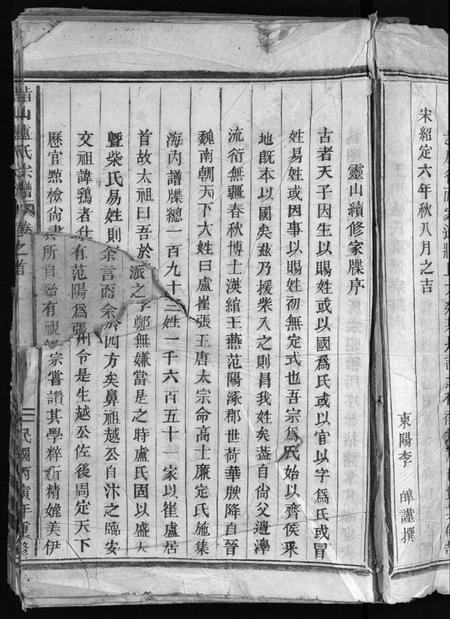 宋紹定六年秋八月之吉
東陽李 謹撰
靈山續修家牒序
古者天子因生以賜姓或以國爲氏或以官以字爲氏或冒
姓易姓或因事以賜姓初無定式也吾宗爲氏始以齊侯采
地既本以國矣茲乃援柴入之則昌我姓矣葢自尙父遺澤
流衍無疆春秋博士漢綰王燕范陽涿郡世荷華腴降自晉
魏南朝天下大姓曰盧崔張王唐太宗命高士廉定氏施集
海內譜牒總一百九十三姓一千六百五十一家以崔盧居
首故太祖曰吾於 派之字鄭無嫌當是之時盧氏固以盛大
曁柴氏易姓則余言 四方矣鼻祖越公自汴之臨安
文祖諱鶚者仕 有范陽爲張 州令是生越公佐後周定天下
歷官點檢尙書 所自始有 宗嘗讚其學粹 精媲美伊
山盧氏宗譜 卷之首
民國丙寅年重修